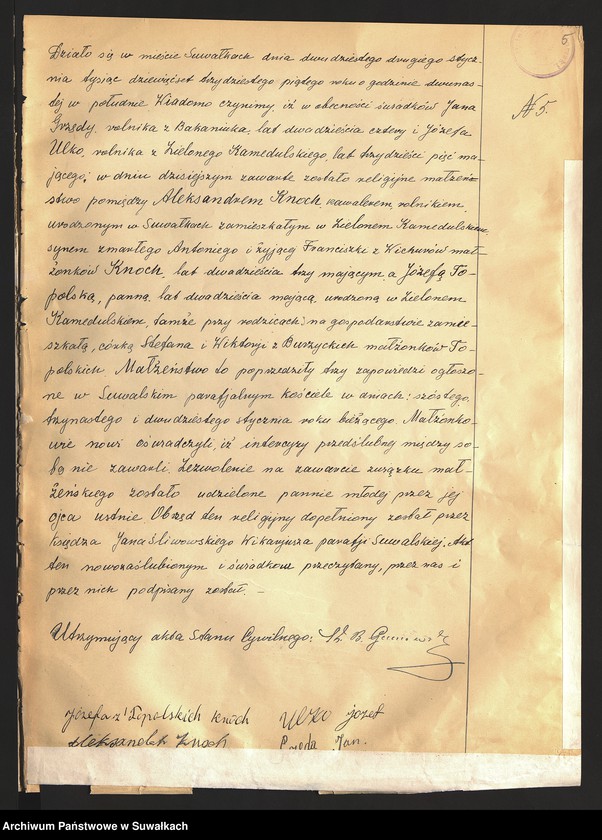 5
№ 5.
Działo się w mieście Suwałkach dnia dwudziestego drugiego stycz-
nia tysiąc dziewięćset trzydziestego piątego roku o godzinie dwunas-
tej w południe Wiadomo czynimy, iż w obecności świadków Jana
Grzędy, rolnika z Bakaniuka, lat dwadzieścia cztery i Józefa
Ulko, rolnika z Zielonego Kamedulskiego, lat trzydzieści pięć ma-
jącego; w dniu dzisiejszym zawarte zostało religijne małżeń-
stwo pomiędzy Aleksandrem Knoch kawalerem, rolnikiem,
urodzonym w Suwałkach zamieszkałym w Zielonem Kamedulskiem,
synem zmarłego Antoniego i żyjącej Franciszki z Wichurów mał-
żonków Knoch, lat dwadzieścia trzy mającym, a Józefą To-
polską, panną, lat dwadzieścia mającą, urodzoną w Zielonem
Kamedulskiem, tamże przy rodzicach na gospodarstwie zamie-
szkałą, córką Stefana i Wiktorji z Burzyckich małżonków To-
polskich. Małżeństwo to poprzedziły trzy zapowiedzi ogłoszo-
ne w Suwalskim parafjalnym kościele w dniach: szóstego,
trzynastego i dwudziestego stycznia roku bieżącego. Małżonko-
wie nowi oświadczyli, iż intercyzy przedślubnej między so-
bą nie zawarli. Zezwolenie na zawarcie związku mał-
żeńskiego zostało udzielone pannie młodej przez jej
ojca ustnie. Obrzęd ten religijny dopełniony został przez
księdza Jana Śliwowskiego Wikarjusza parafji Suwalskiej. Akt
ten nowozaślubionym i świadkom przeczytany, przez nas i
przez nich podpisany został. –
Utrzymujący akta Stanu Cywilnego: B.
Józefa z Topolskich Knoch
Ulko Józef
Aleksander Knoch
Jan.
Archiwum Państwowe w Suwałkach